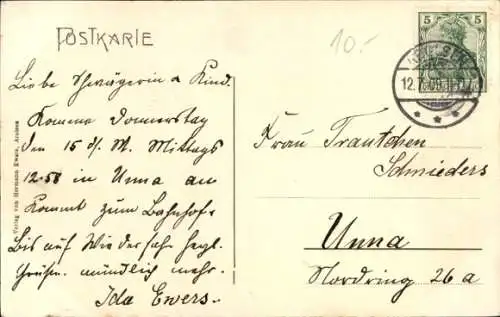 POSTKARTE
10.-
5
12.7.09
Verlag von Hermann Ewers, Arolsen
Liebe Schwägerin u Kind.
Komme Donnerstag
den 15 d/. M. Mittags
12.58 in Unna an
kommt zum Bahnhof.
Bis auf Wiedersehn herzl.
Grüßen. mündlich mehr.
Ida Ewers.
Frau Trautchen
Schnieders
Unna
Nordring 26a